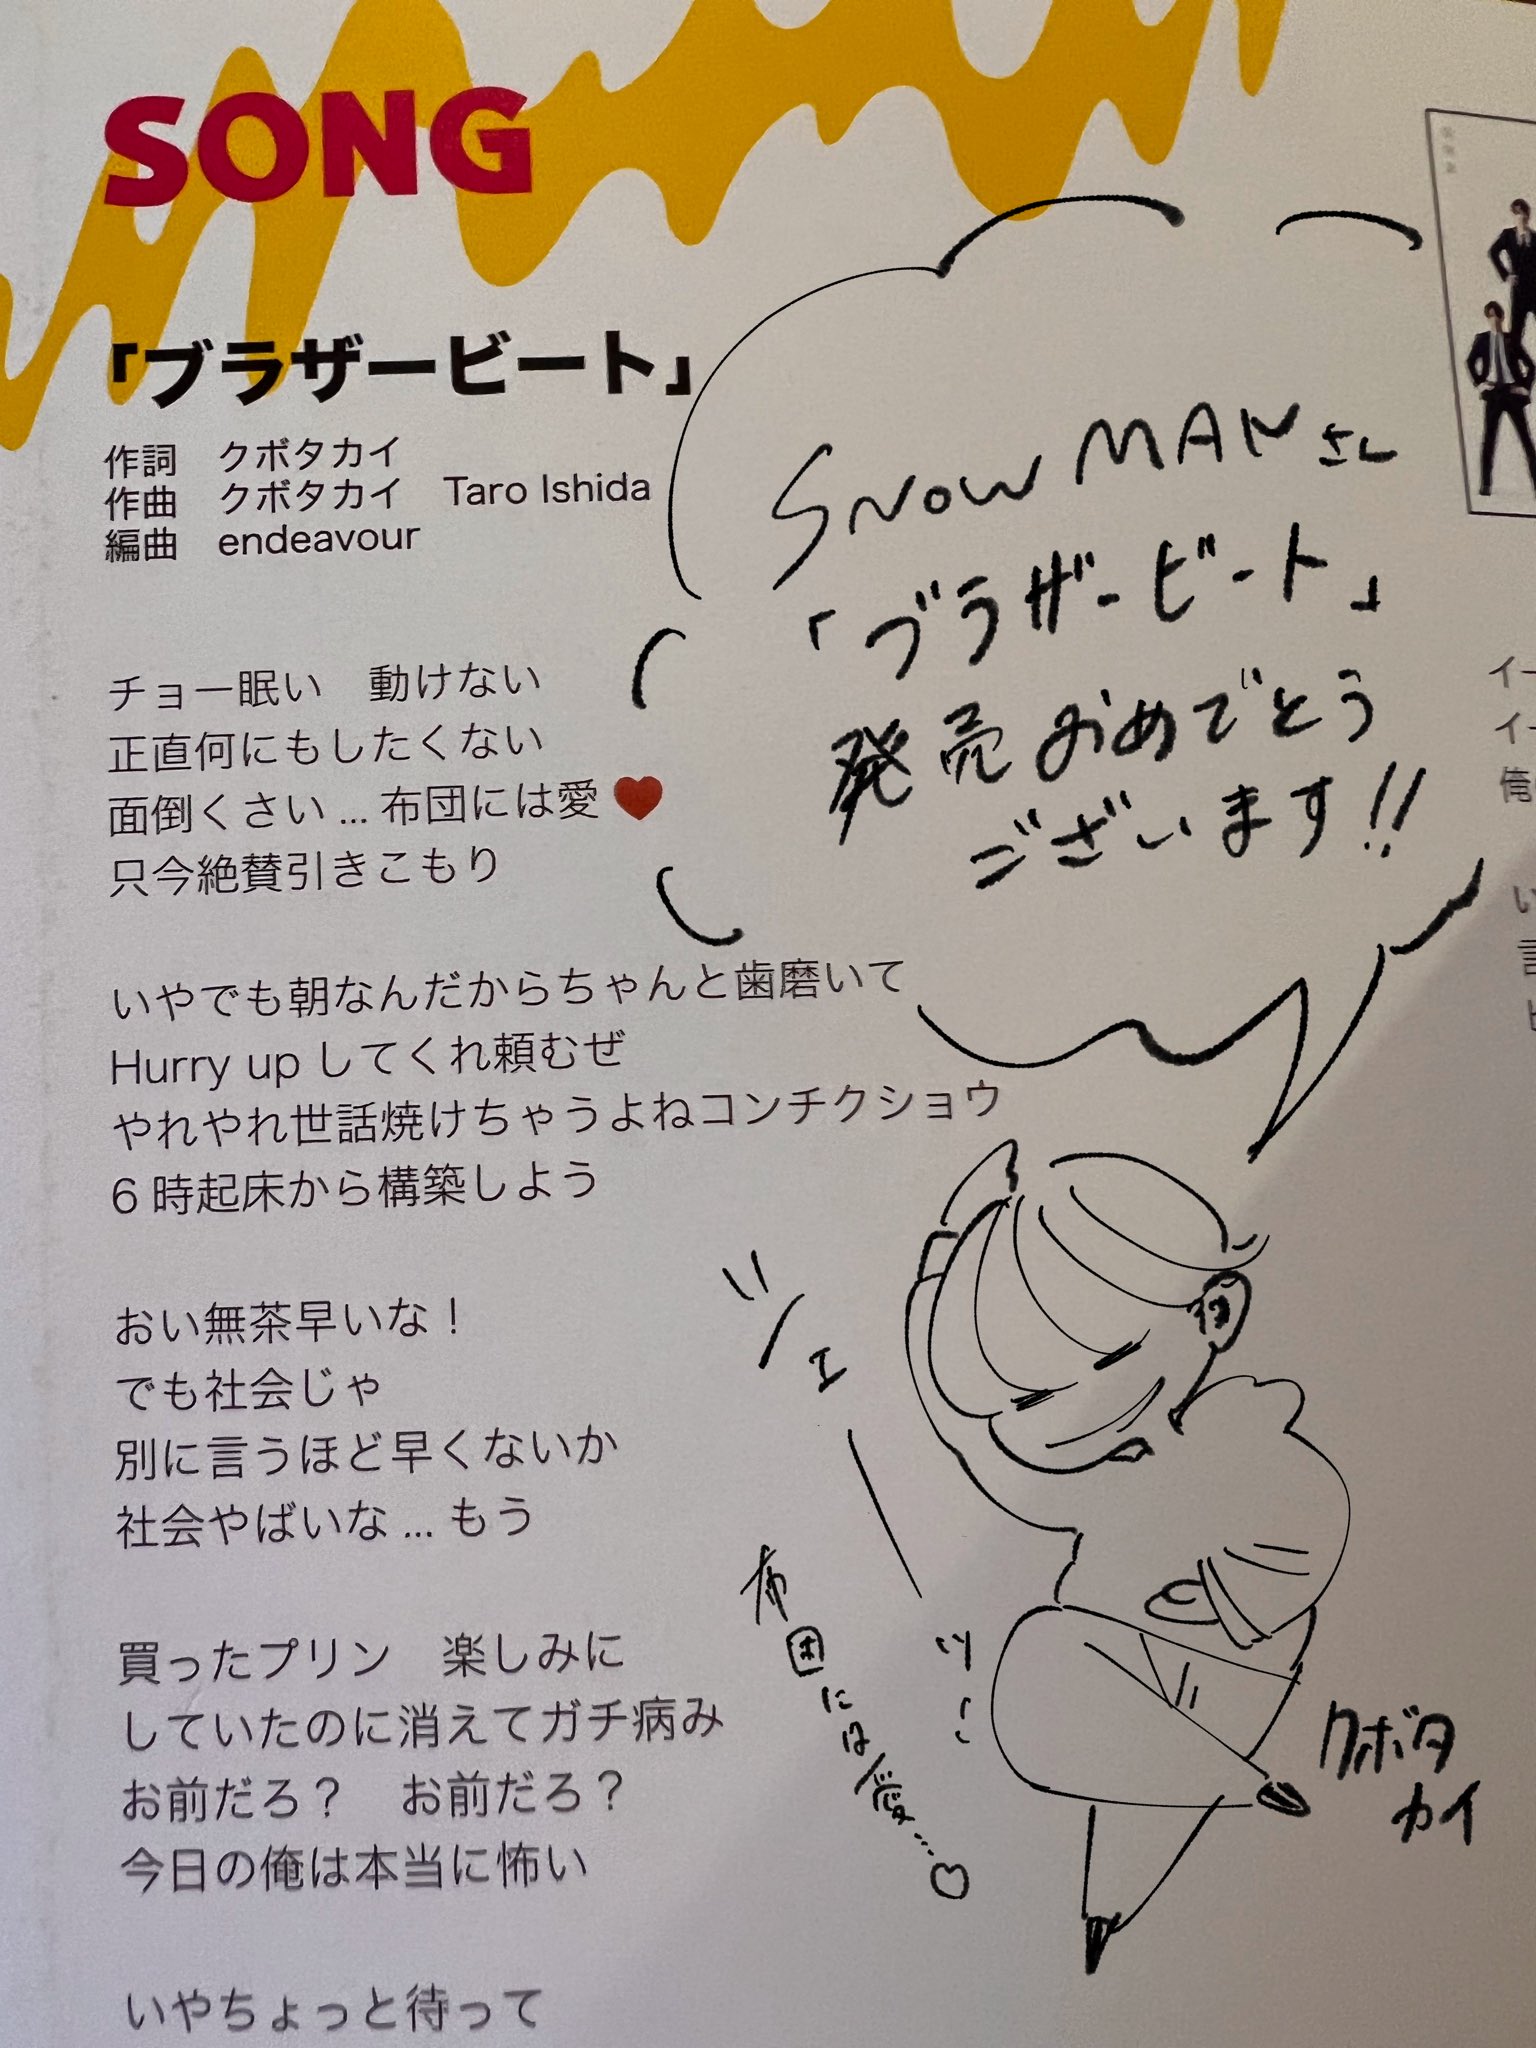 SONG
「ブラザービート」
作詞　クボタカイ
作曲　クボタカイ　Taro Ishida
編曲　endeavour
チョー眠い　動けない
正直何にもしたくない
面倒くさい... 布団には愛♥
只今絶賛引きこもり
いやでも朝なんだからちゃんと歯磨いて
Hurry up してくれ頼むぜ
やれやれ世話焼けちゃうよねコンチクショウ
6 時起床から構築しよう
おい無茶早いな！
でも社会じゃ
別に言うほど早くないか
社会やばいな ... もう
買ったプリン　楽しみに
していたのに消えてガチ病み
お前だろ？　お前だろ？
今日の俺は本当に怖い
いやちょっと待って
SNOW MANさん
「ブラザービート」
発売おめでとう
ございます!!
シェー
布団には愛...♡
クボタ
カイ
イー
イー
俺
い
言
ヒ